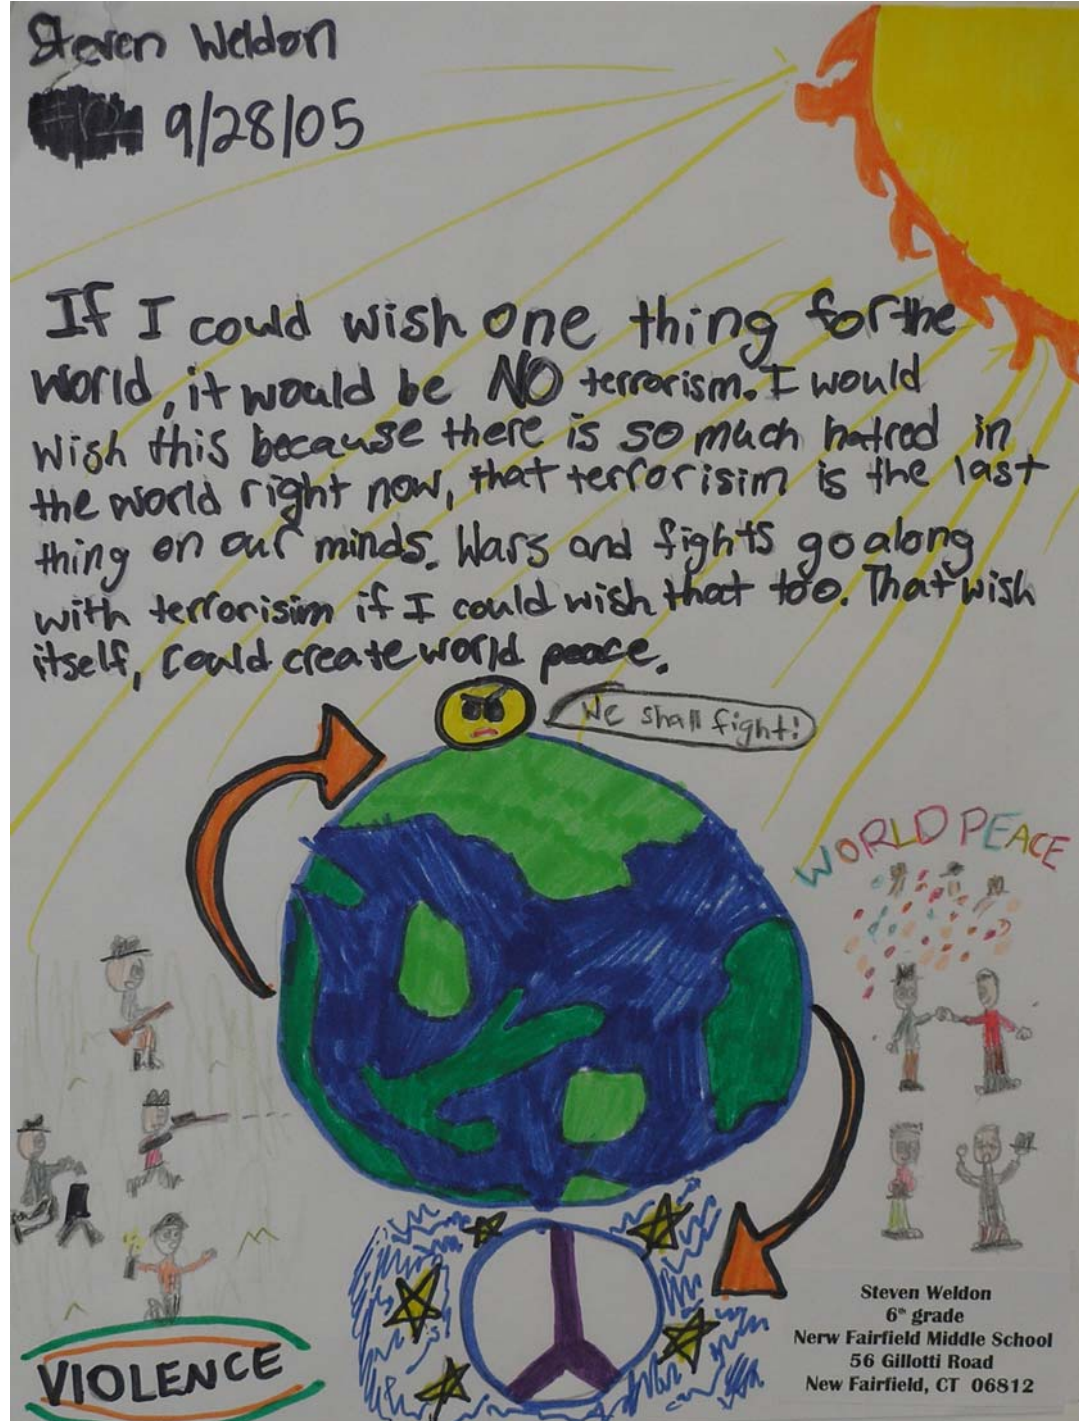 Steven Weldon
9/28/05
If I could wish one thing for the
world, it would be NO terrorism. I would
wish this because there is so much hatred in
the world right now, that terrorisim is the last
thing on our minds. Wars and fights go along
with terrorisim if I could wish that too. That wish
itself, could create world peace.
We shall fight!
WORLD PEACE
VIOLENCE
Steven Weldon
6th grade
Nerw Fairfield Middle School
56 Gillotti Road
New Fairfield, CT 06812